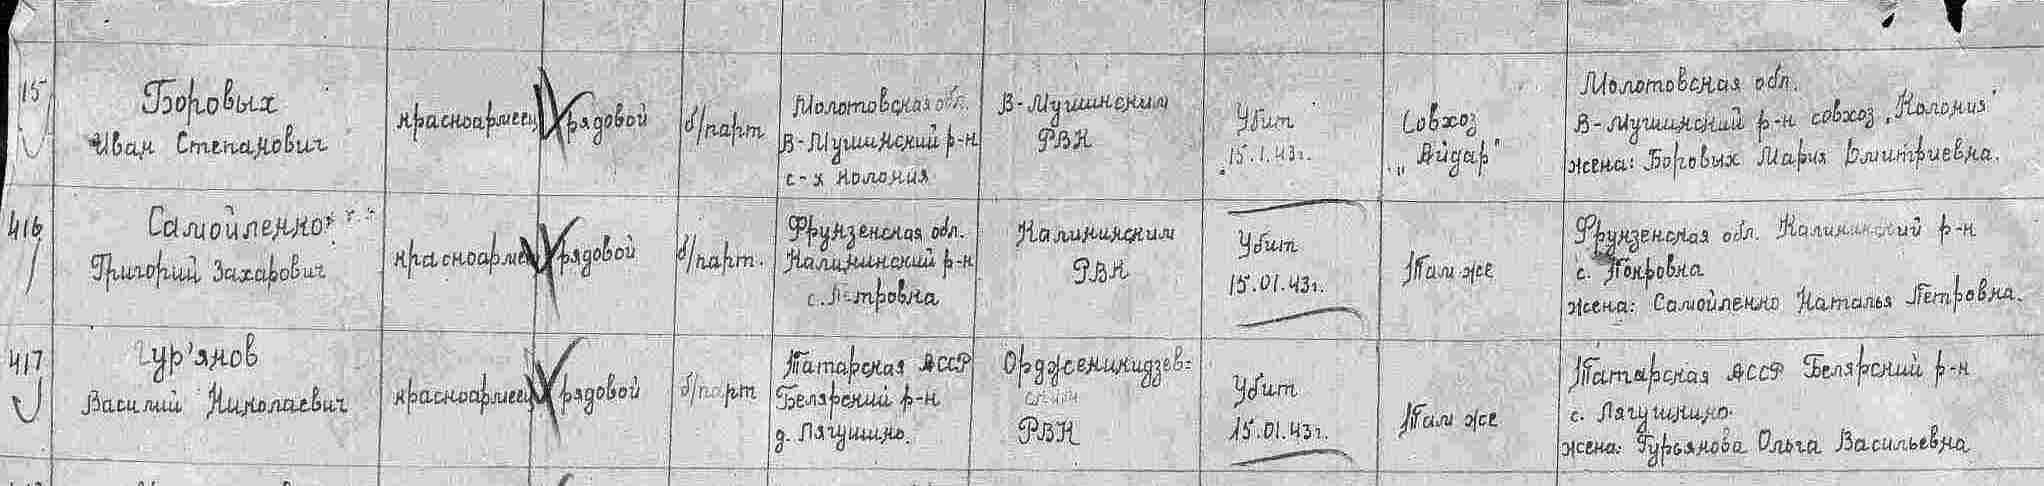 15
Боровых
Иван Степанович
красноармеец
рядовой
б/парт
Молотовская обл.
В-Мушинский р-н
с-х колония
В-Мушинским
РВК
Убит
15.1.43г.
Совхоз
„Айдар"
Молотовская обл.
В-Мушинский р-н совхоз „Колония"
жена: Боровых Мария Дмитриевна.
416
Самойленко
Григорий Захарович
красноармеец
рядовой
б/парт.
Фрунзенская обл.
Калининский р-н
с. Петровка
Калининским
РВК
Убит
15.01.43г.
Там же
Фрунзенская обл. Калининский р-н
с. Покровка
жена: Самойленко Наталья Петровна.
417
Гур'янов
Василий Николаевич
красноармеец
рядовой
б/парт
Татарская АССР
Белярский р-н
д. Лягушкино.
Орджоникидзев-
ским
РВК
Убит
15.01.43г.
Там же
Татарская АССР Белярский р-н
с. Лягушкино.
жена: Гурьянова Ольга Васильевна